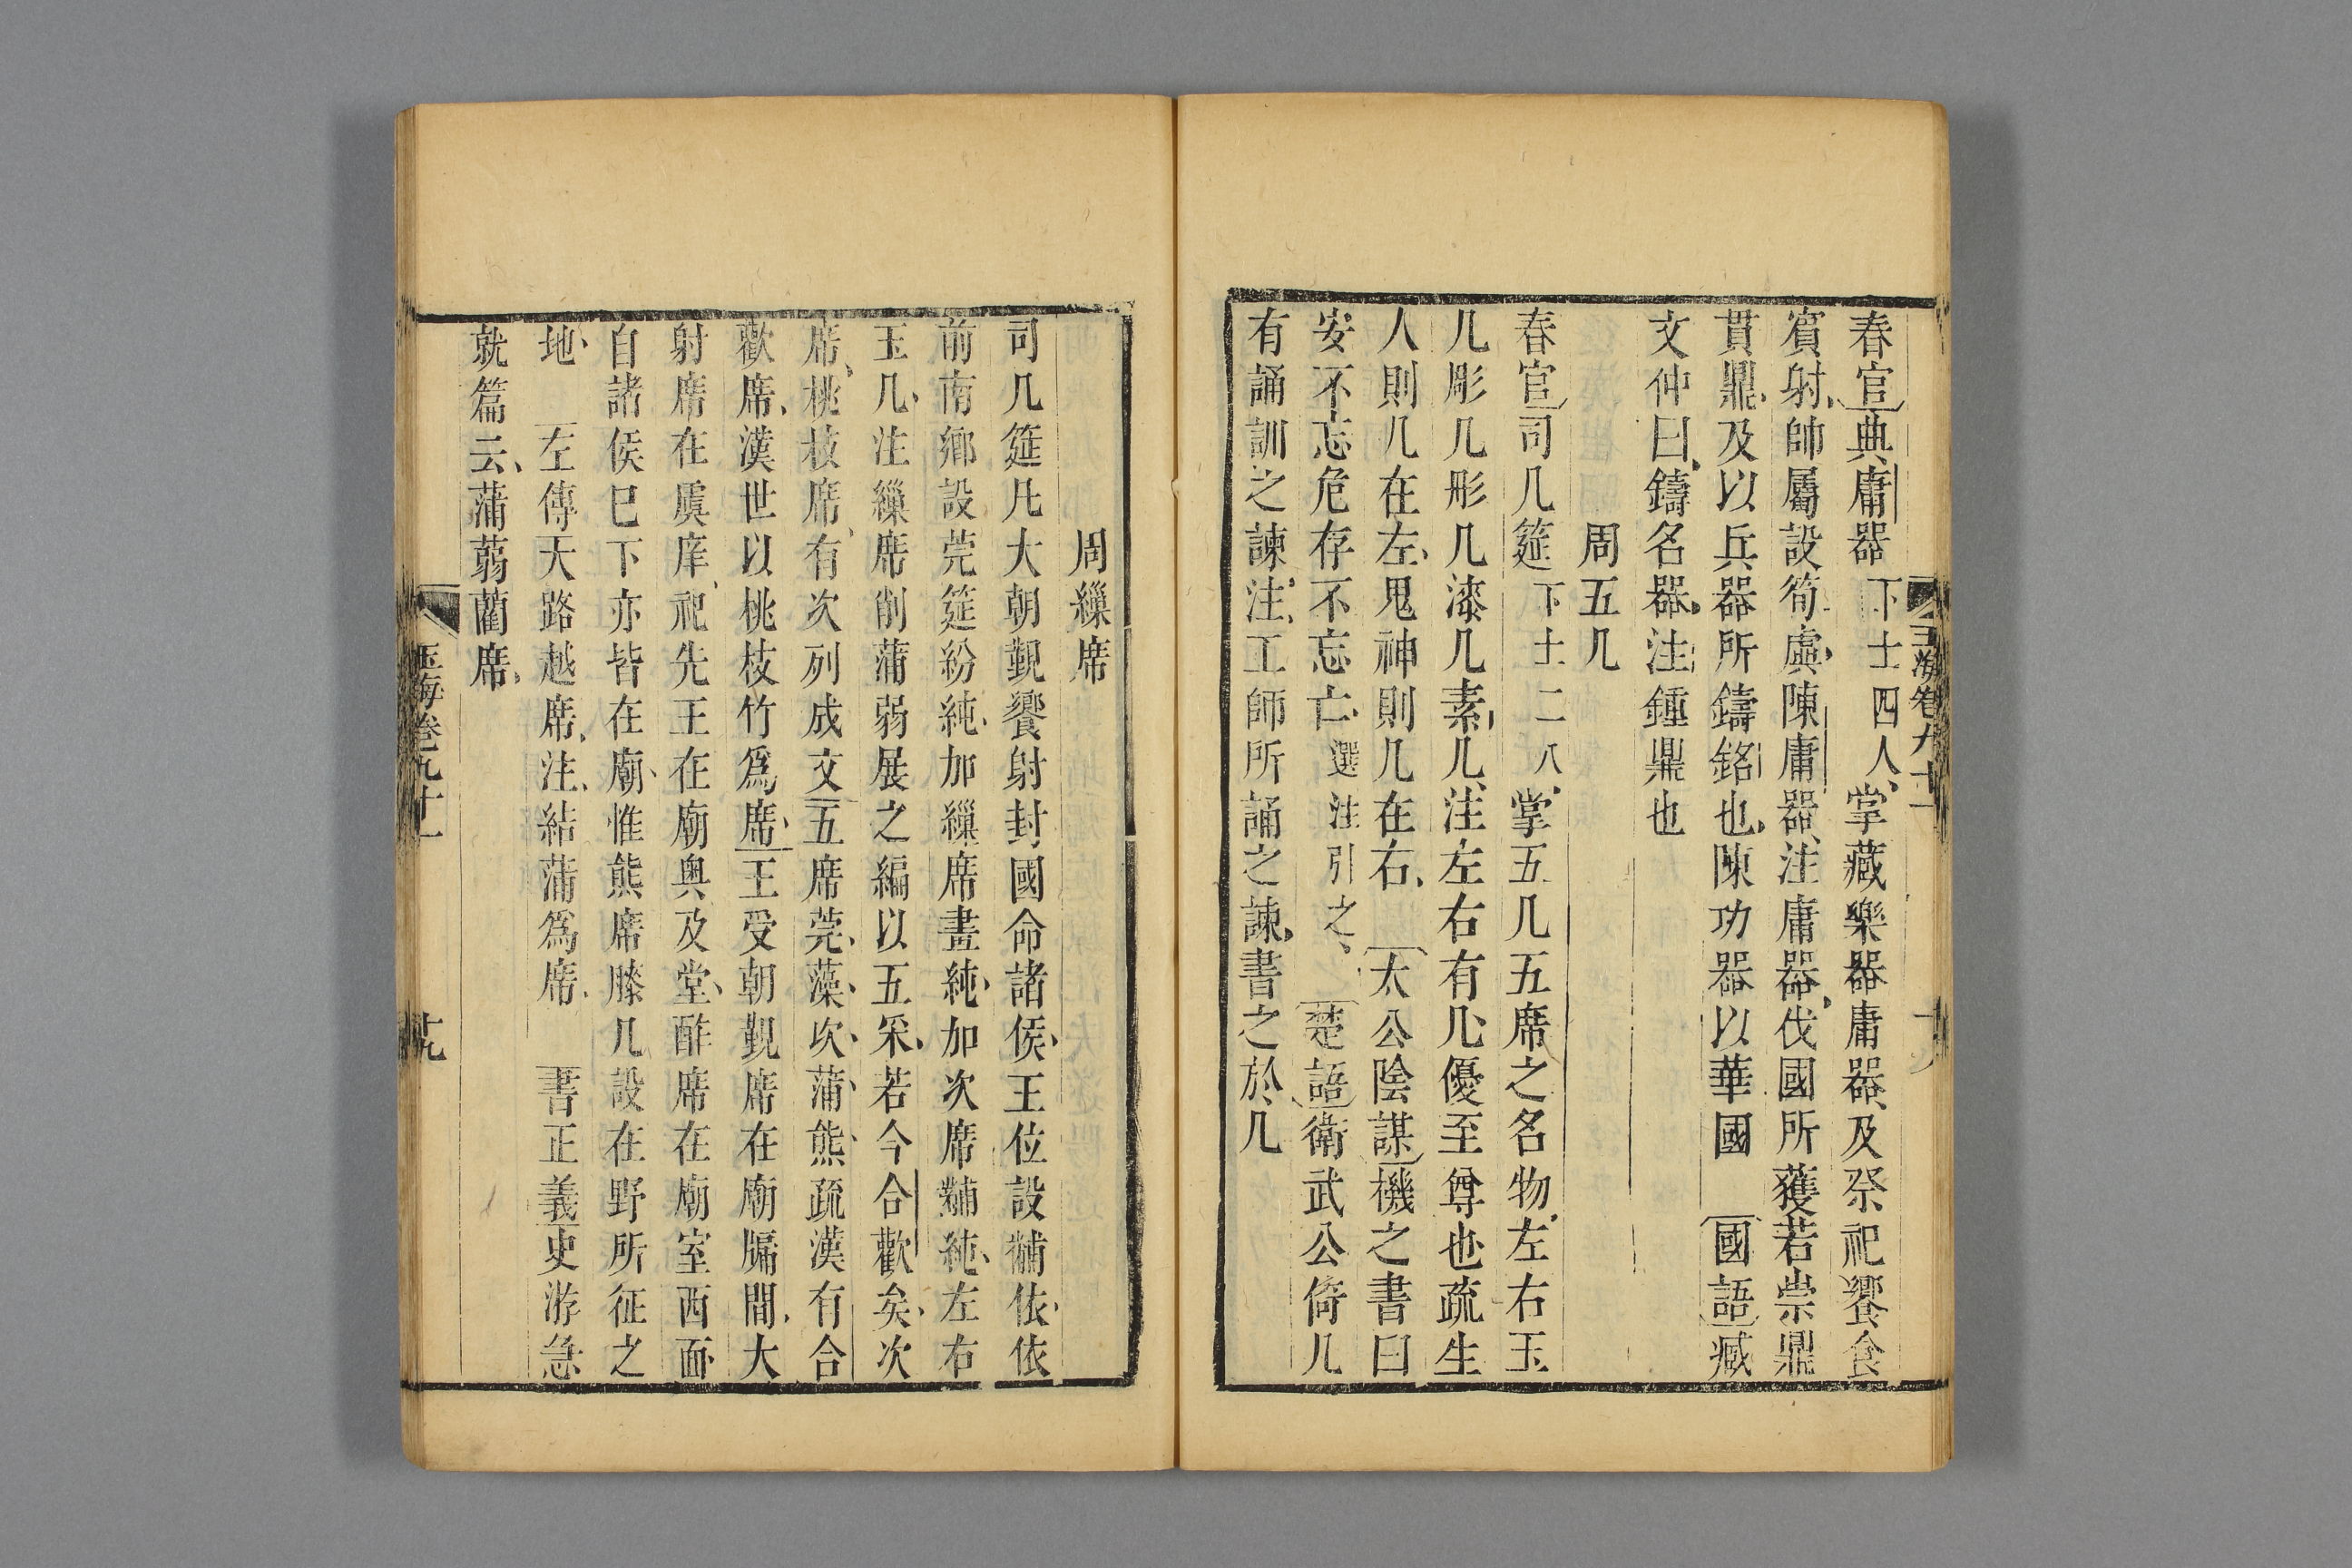 春官典庸器下士四人掌藏樂器庸器及祭祀饗食
賓射帥屬設筍虡陳庸器注庸器伐國所獲若崇鼎
貫鼎及以兵器所鑄銘也陳功器以華國國語臧
文仲曰鑄名器注鍾鼎也
周五几
春官司几筵下士二人掌五几五席之名物左右玉
几彫几彤几漆几素几注左右有几優至尊也疏生
人則几在左鬼神則几在右太公陰謀機之書曰
安不忘危存不忘亡選注引之楚語衛武公倚几
有誦訓之諫注工師所誦之諫書之於几
玉海卷九十一
周繅席
司几筵凡大朝覲饗射封國命諸侯王位設黼依依
前南鄉設莞筵紛純加繅席畫純加次席黼純左右
玉几注繅席削蒲弱展之編以五采若今合歡矣次
席桃枝席有次列成文五席莞藻次蒲熊疏漢有合
歡席漢世以桃枝竹爲席王受朝覲席在廟牖間大
射席在虞庠祀先王在廟奥及堂酢席在廟室西面
自諸侯巳下亦皆在廟惟熊席漆几設在野所征之
地左傳大路越席注結蒲爲席書正義史游急
就篇云蒲蒻藺席
玉海卷九十一
十九